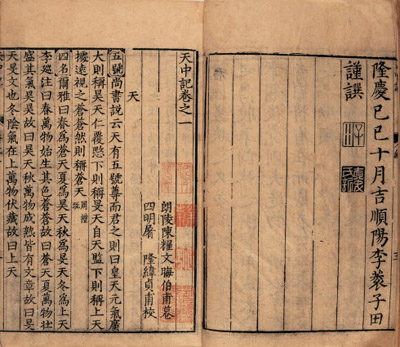 隆慶己巳十月吉順陽李蓘子田
謹譔
天中記卷之一
朗陵陳耀文晦伯甫纂
四明屠隆緯真甫校
天
五號尚書說云天有五號尊而君之則曰皇天元氣廣
大則稱昊天仁覆愍下則稱旻天自天監下則稱上天
據遠視之蒼蒼然則稱蒼天
四名爾雅曰春爲蒼天夏爲昊天秋爲旻天冬爲上天
李廵註曰春萬物始生其色蒼蒼故曰蒼天夏萬物壯
盛其氣昊昊故曰昊天秋萬物成熟皆有文章故曰旻
天旻文也冬陰氣在上萬物伏藏故曰上天